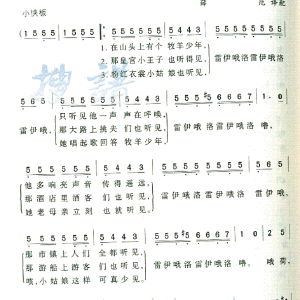 薛 范 译配
小快板
(1 5 8 5 | 5 5 5) |
5 5 5 5 5 5 | 5 4 4 3 | 5 5 5 5 5 5 5 5
1. 在山头上有个 牧羊少年,
2. 那皇宫小王子 也听得见, 雷伊哦洛雷伊哦洛
3. 粉红衣裳小姑 娘也听见,
5 6 5 | 5 5 5 5 5 5 | 5 4 4 3
只听见他一声 声在呼哦,
雷伊哦, 那大路上挑夫 们也听见, 雷伊哦洛雷伊哦洛噜。
她唱起歌回答 牧羊少年,
5 5 5 5 5 5 | 5 4 4 3
他多响亮声音 传得遥远,
那酒店里酒客 们也听见, 雷伊哦洛雷伊哦洛 雷伊哦,
她老母亲立刻 也就听见,
5 5 5 5 5 5 | 5 4 4 3
那市镇上人们 全都听见,
那游船上游客 们也听见, 雷伊哦洛雷伊哦洛噜。 哦荷,
哦,小姑娘这样 可真少见。